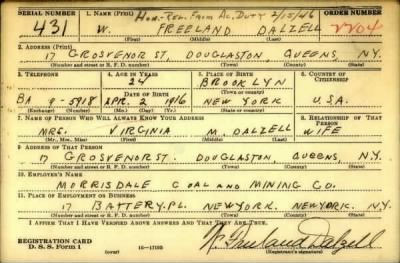 SERIAL NUMBER 1. NAME (Print) Hon. Rel. from Ac. Duty 2/15/46 ORDER NUMBER
431 W. FREELAND DALZELL 2204
(First) (Middle) (Last)
2. ADDRESS (Print)
17 GROSVENOR ST. DOUGLASTON, QUEENS, N.Y.
(Number and street or R. F. D. number) (Town) (County) (State)
3. TELEPHONE 4. AGE IN YEARS 5. PLACE OF BIRTH 6. COUNTRY OF CITIZENSHIP
24 BROOKLYN
DATE OF BIRTH (Town or county)
BA 9-5918 APR. 2 1916 NEW YORK U.S.A.
(Exchange) (Number) (Mo.) (Day) (Yr.) (State or country)
7. NAME OF PERSON WHO WILL ALWAYS KNOW YOUR ADDRESS 8. RELATIONSHIP OF THAT PERSON
MRS. VIRGINIA M. DALZELL WIFE
(Mr., Mrs., Miss) (First) (Middle) (Last)
9. ADDRESS OF THAT PERSON
17 GROSVENOR ST. DOUGLASTON QUEENS, N.Y.
(Number and street or R. F. D. number) (Town) (County) (State)
10. EMPLOYER'S NAME
MORRISDALE COAL AND MINING CO.
11. PLACE OF EMPLOYMENT OR BUSINESS
17 BATTERY PL. NEW YORK. NEW YORK. N.Y.
(Number and street or R. F. D. number) (Town) (County) (State)
I AFFIRM THAT I HAVE VERIFIED ABOVE ANSWERS AND THAT THEY ARE TRUE.
REGISTRATION CARD
D. S. S. Form 1 (over) 16-17105 W. Freeland Dalzell
(Registrant's signature)